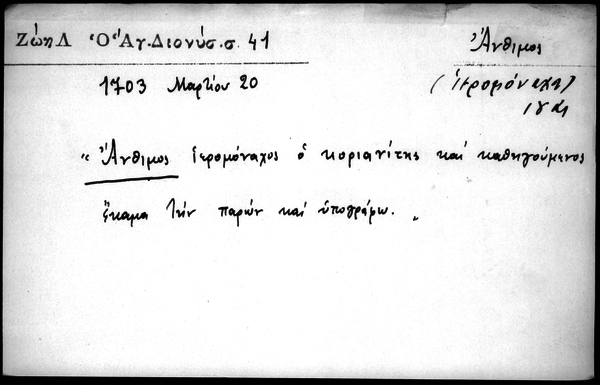 Ζώη Λ Ὁ Ἁγ. Διονύσ. σ. 41
Ἄνθιμος
1703 Μαρτίου 20
(ἱερομόναχος)
"Ἄνθιμος ἱερομόναχος ὁ κοριανίτης καὶ καθηγούμενος
ἔκαμα τὴν παρὼν καὶ ὑπογράφω."